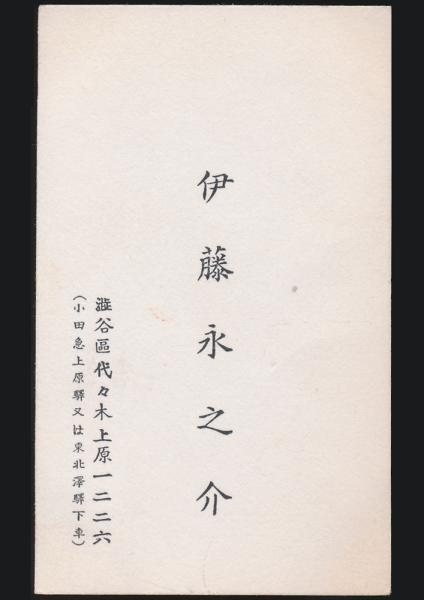 伊藤永之介
澁谷區代々木上原一二二六
(小田急上原驛又は東北澤驛下車)